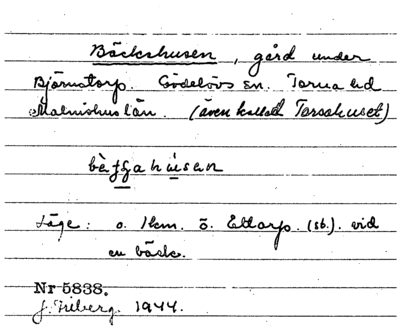 Bäckshusen, gård under
Björnstorp. Gödelövs sn. Torna hd
Malmöhus län. (även kallad Torsahuset)
Läge: o. 1 km. ö. Ettarp. (sb.). vid
en bäck.
Nr 5838.
J. Friberg. 1944.